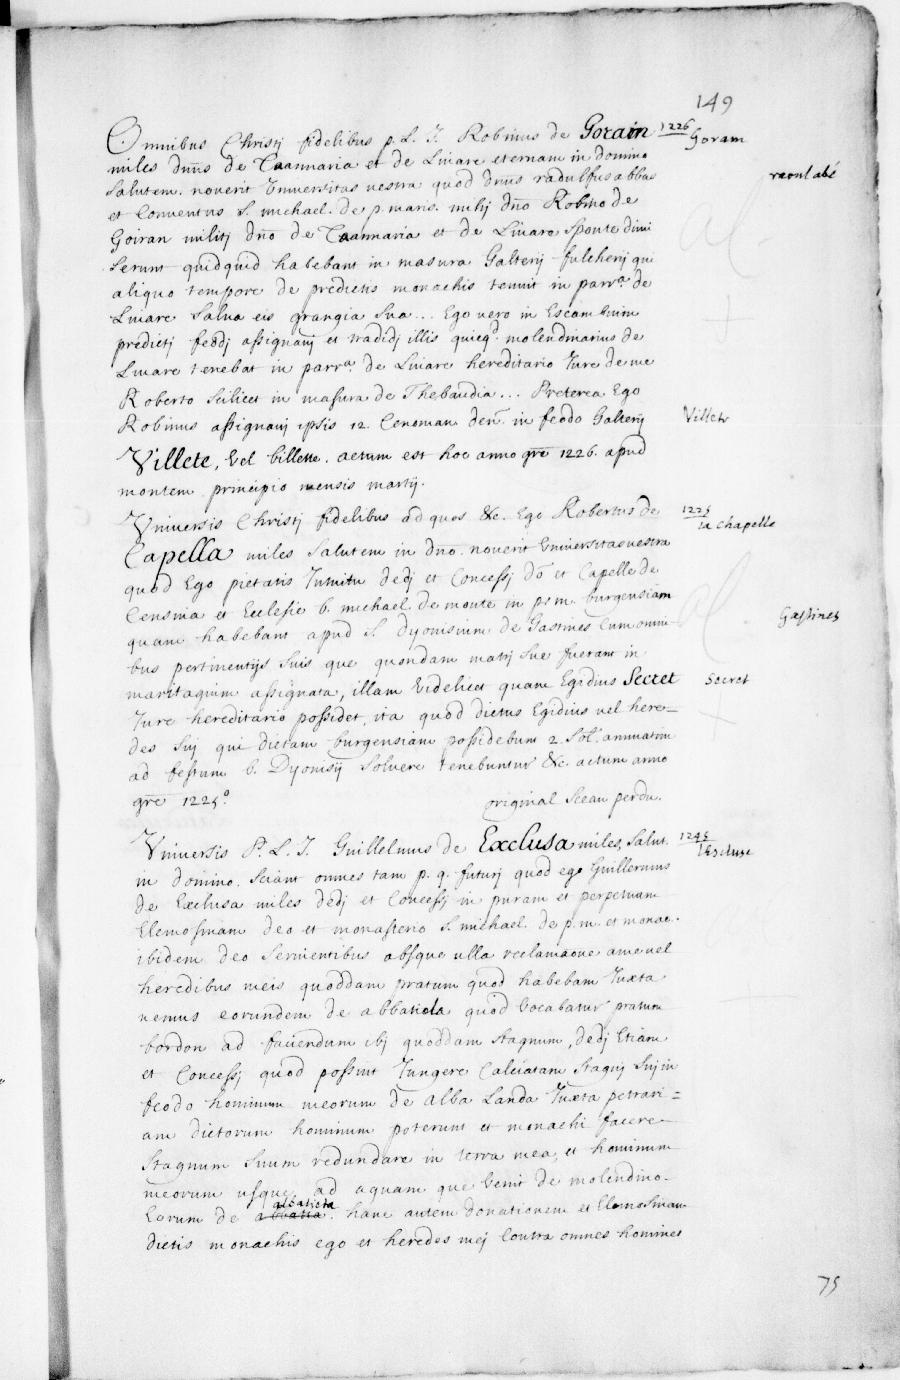 149
Omnibus Christi fidelibus p. L. J. Robinus de Gorain 1226 Goram
miles dnūs de Taannaria et de Livare eternam in domino
salutem. noverit Universitas vestra quod dnūs radulfus abbas raoul abé
et Conventus S. michael. de p. maris. mihj dño Robino de
Goiran militj dño de Taannaria et de Livare sponte dimi
serunt quidquid habebant in masura Galterij fulcherij qui
aliquo tempore de predictis monachis tenuit in parr.a de
Livare salva eis grangia sua... Ego vero in Escambium
predictj feodj assignavj et tradidj illis quicqd. molendinarius de
Livare tenebat in parr.a de Livare hereditario Jure de me
Roberto scilicet in masura de Thebaudia... Preterea Ego
Robinus assignavj ipsis 12. Cenoman. den. in feodo Galterij Villete
Villete, vel billette. actum est hoc anno grē 1226. apud
montem principio mensis martij.
Universis Christj fidelibus ad quos &c. Ego Robertus de 1225 la chapelle
Capella miles salutem in dño. noverit Universitas vestra
quod Ego pietatis Intuitu dedj et Concessj dō et Capelle de
Censina et Ecclesie b. michael. de monte in p. m. burgensiam
quam habebam apud S. Dyonisium de Gastines Cum omni Gastines
bus pertinentijs suis que quondam matrj sue fuerant in
maritagium assignata, illam Videlicet quam Egidius Secret Secret
Jure hereditario possidet, ita quod dictus Egidius vel here=
des suj qui dictam burgensiam possidebunt 2. sol. annuatim
ad festum b. Dyonisij solvere tenebuntur &c. actum anno
grē 1225.o
original sceau perdu.
Universis P. L. J. Guillelmus de Exclusa miles, salut. 1245 lescluse
in domino. sciant omnes tam p. q. futurj quod ego Guillermus
de Exclusa miles dedj et Concessj in puram et perpetuam
Elemosinam deo et monasterio S. michael. de p. m. et monac.
ibidem deo servientibus absque ulla reclamaōne a me vel
heredibus meis quoddam pratum quod habebam Juxta
nemus eorundem de abbatiola quod Vocabatur pratum
bordon ad faciendum ibj quoddam stagnum, dedj Etiam
et Concessj quod possint Jungere Calciatam stagnj suj in
feodo hominum meorum de alba Landa Juxta petrari=
am dictorum hominum poterunt et monachi facere
stagnum suum redundare in terra mea, et hominum
meorum usque ad aquam que Venit de molendino
Eorum de hanc autem donationem et Elemosinam
dictis monachis ego et heredes mej Contra omnes homines
75